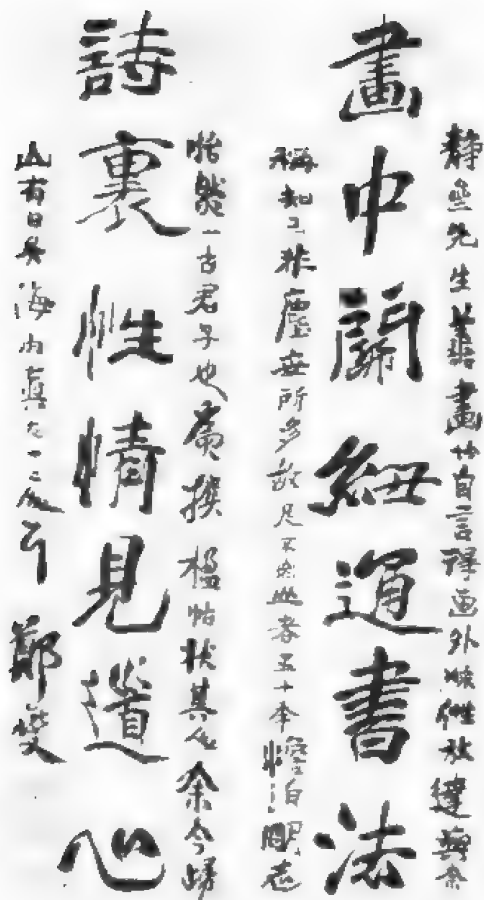 先生善畫竹自言得画外性放達與余
畫中關紐通書法
稱知己非塵世所多故足不出者五十年澹泊明志
怡然一古君子也撰楹帖狀其人余今歸
詩裏性情見道心
山有日矣海內真一二人云鄭燮